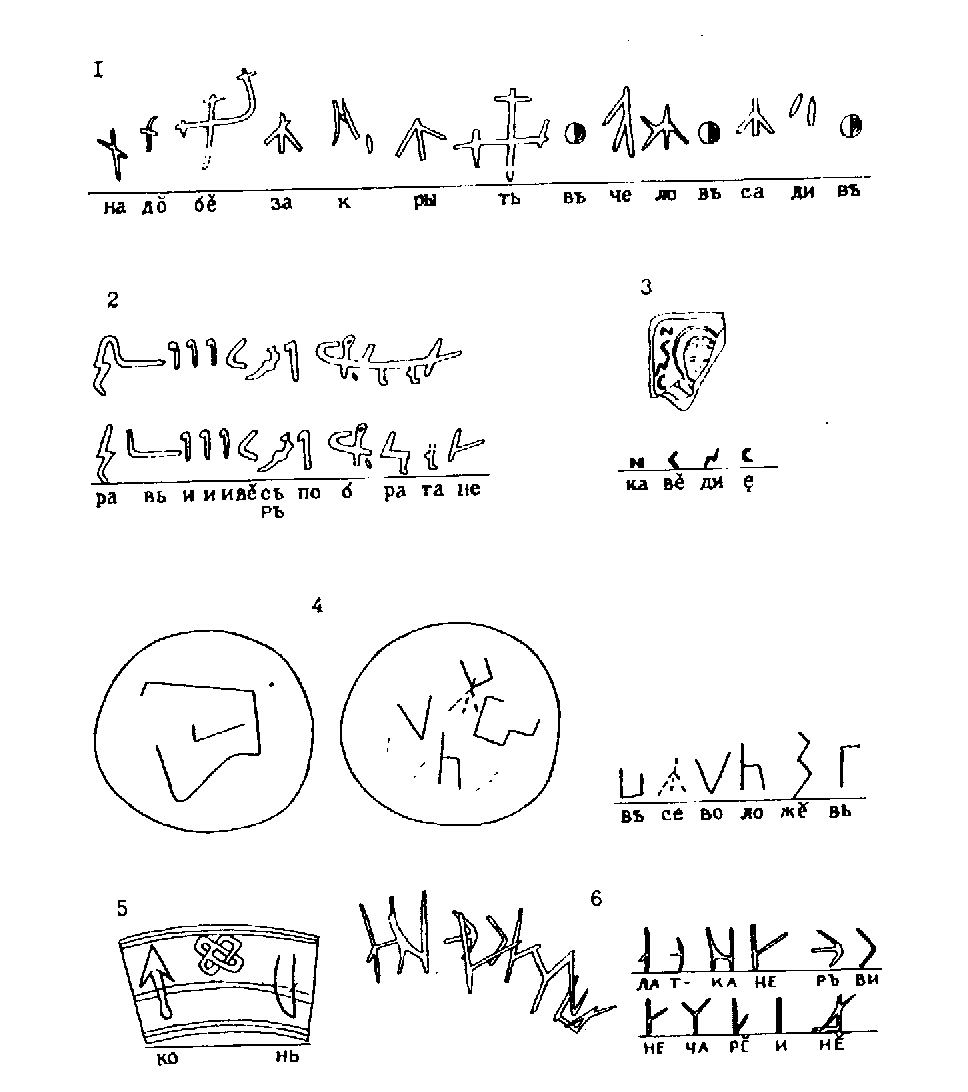 1
на дŏ бě за к ры ть въ че ло въ са ди въ
2
3
ра вь и и ивě съ по б ра та не
РЪ
ка вě ди ę
4
въ се во ло жě вь
5
6
ко нь
ЛА Т- КА НЕ РЪ ВИ
НЕ ЧА РĔ И НĔ